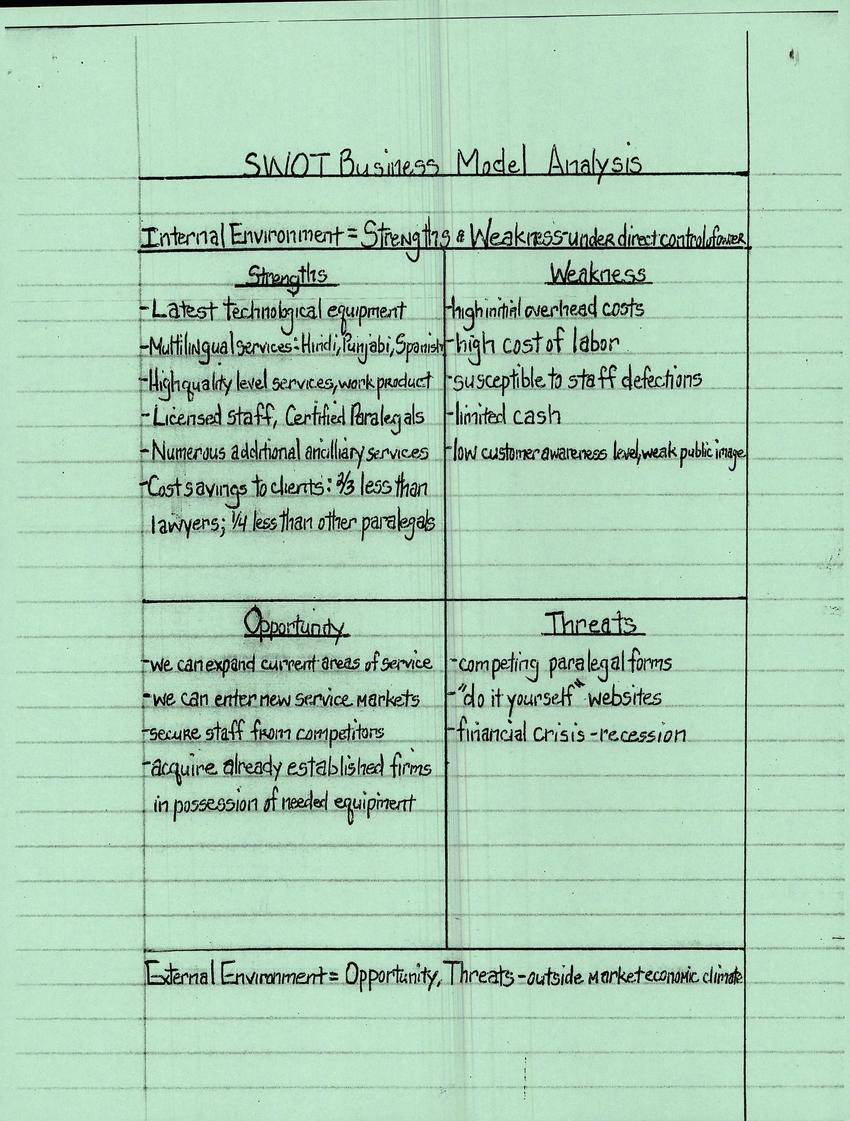 SWOT Business Model Analysis
Internal Environment = Strengths & Weakness-under direct control of owner
Strengths
-Latest technological equipment
-Multilingual services: Hindi, Punjabi, Spanish
-High quality level services, work product
-Licensed staff, Certified Paralegals
-Numerous additional ancilliary services
-Cost savings to clients: 2/3 less than
lawyers; 1/4 less than other paralegals
Weakness
-high initial overhead costs
-high cost of labor
-susceptible to staff defections
-limited cash
-low customer awareness level, weak public image
Opportunity
-we can expand current areas of service
-we can enter new service markets
-secure staff from competitors
-acquire already established firms
in possession of needed equipment
Threats
-competing paralegal forms
-"do it yourself" websites
-financial crisis -recession
External Environment = Opportunity, Threats -outside market economic climate